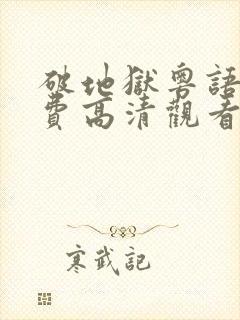 破地獄粵語
費高清觀看
寒武記